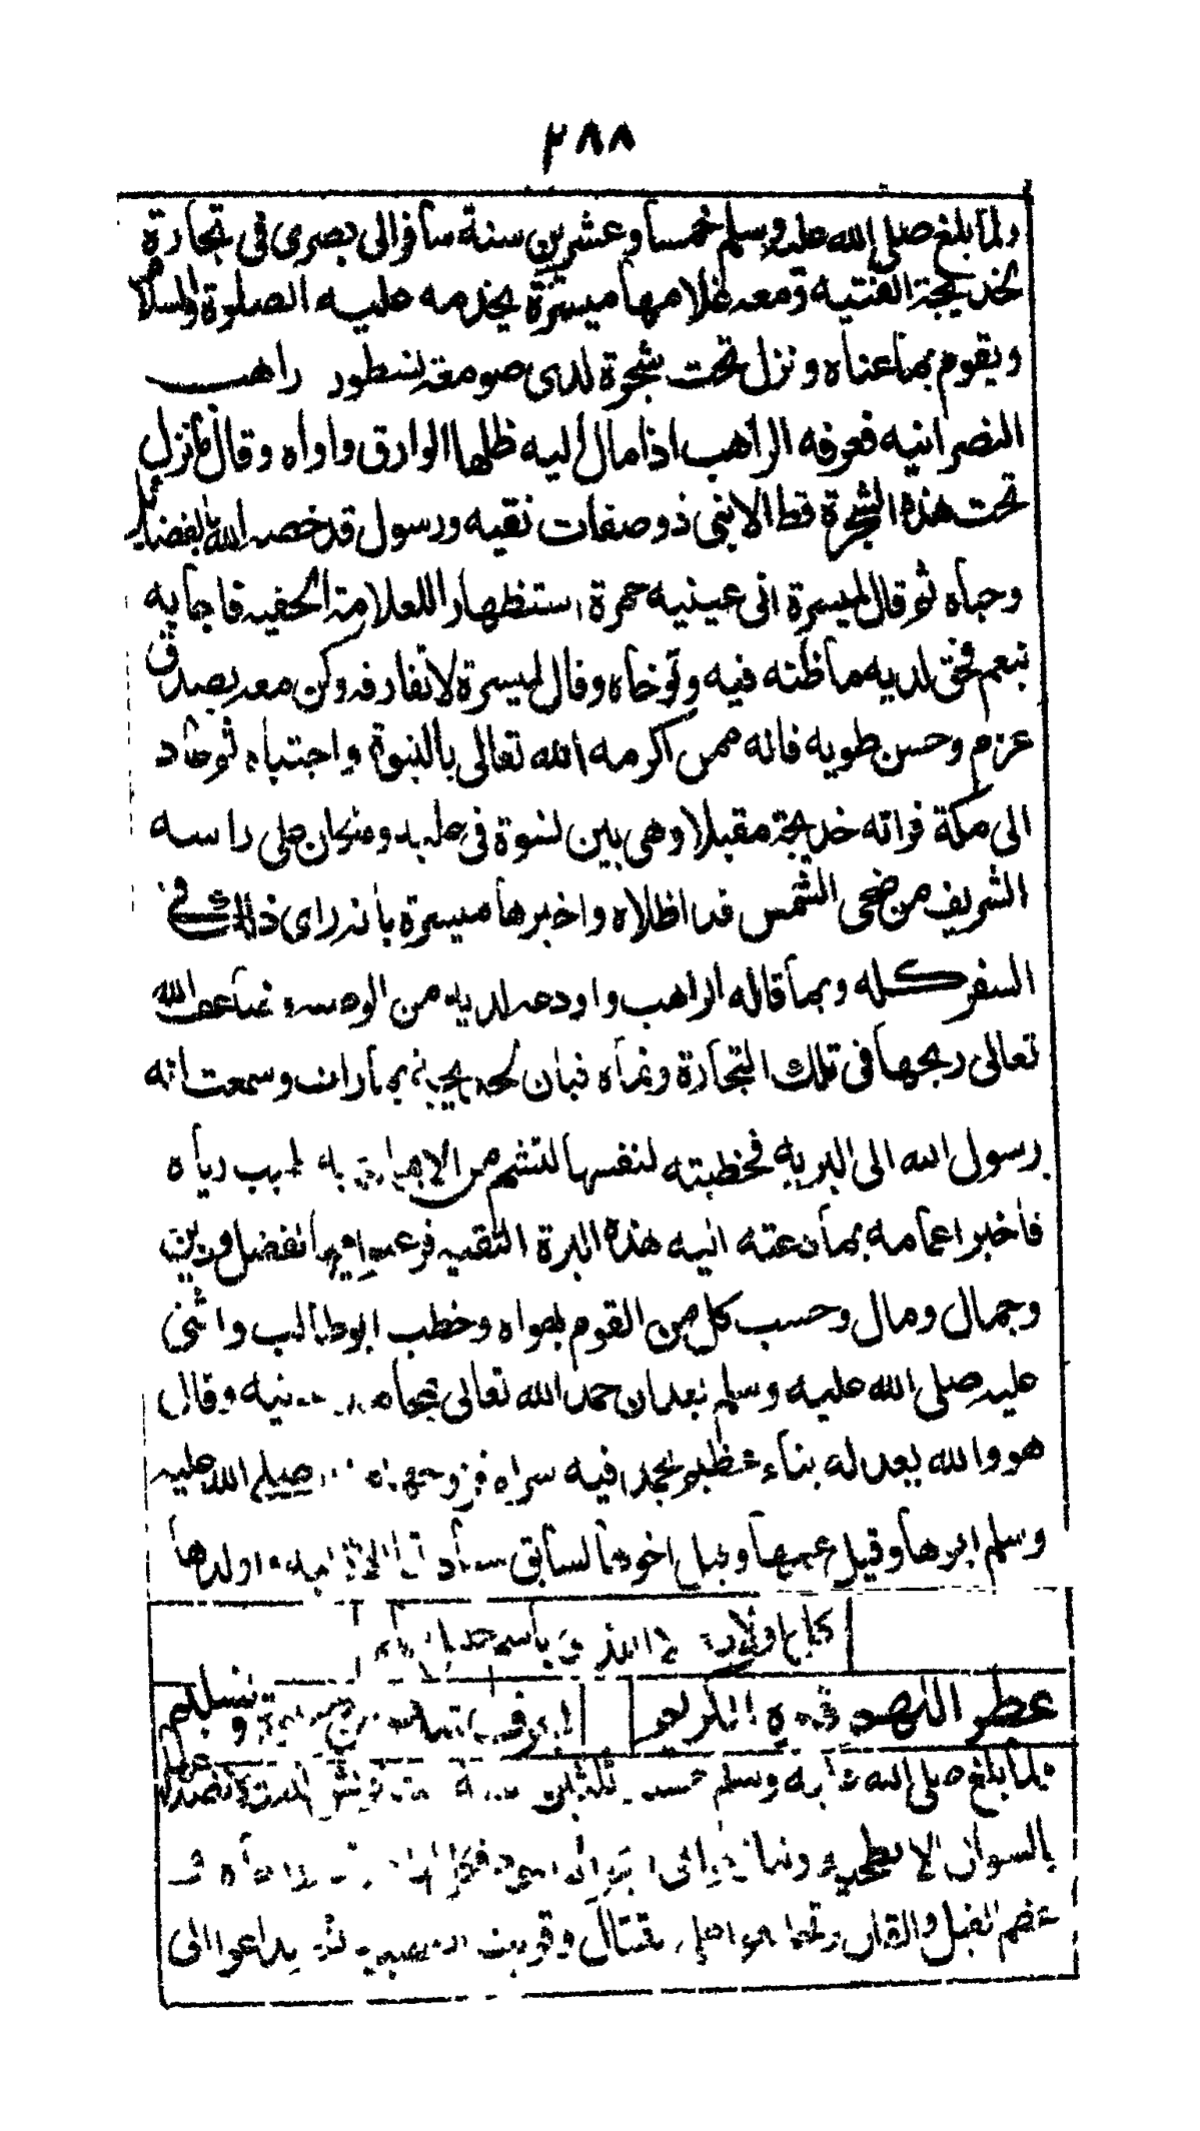 ٢٨٨
ولما بلغ صلى الله عليه وسلم خمسا وعشرين سنة سافر الى بصرى فى تجارة
لخديجة الفتيه ومعه غلامها ميسرة يخدمه عليه الصلوة والسلام
ويقوم بما عناه ونزل تحت شجرة لدى صومعة نسطور راهب
النصرانيه فعرفه الراهب اذا مال اليه ظلها الوارق واواه وقال ما نزل
تحت هذه الشجرة قط الا نبى ذو صفات نقيه ورسول قد خصه الله بالفضائل
وحباه ثم قال لميسرة افى عينيه حمرة استظهارا للعلامة الخفيه فاجابه
بنعم فحق لديه ما ظنه فيه وتوخاه وقال لميسرة لا تفارقه وكن معه بصدق
عزم وحسن طويه فانه ممن اكرمه الله تعالى بالنبوة واجتباه ثم عاد
الى مكة فراته خديجة مقبلا وهى بين نسوة فى عليه وملكان على راسه
الشريف من ضحى الشمس قد اظلاه واخبرها ميسرة بانه راى ذلك فى
السفر كله وبما قاله الراهب واودعه لديه من الوصيه وضاعف الله
تعالى ربحها فى تلك التجارة ونماه فبان لخديجة بما رات وسمعت انه
رسول الله الى البريه فخطبته لنفسها لتشم من الايمان به طيب رياه
فاخبر اعمامه بما دعته اليه هذه البرة التقيه فرغبوا فيها لفضل ودين
وجمال ومال وحسب كل من القوم يهواه وخطب ابو طالب واثنى
عليه صلى الله عليه وسلم بعد ان حمد الله تعالى بمحامد سنيه وقال
هو والله بعد له بناء عظيم يحمد فيه سراه فزوجها منه صلى الله عليه
وسلم ابوها وقيل عمها وقيل اخوها لسابق سعادتها الازليه واولدها
كل اولاده الا الذى باسم الخليل سماه
عطر اللهم قبره الكريم بعرف شذى من صلوة وتسليم
ولما بلغ صلى الله عليه وسلم خمسا وثلثين سنة بنت قريش الكعبة لانصداعها
بالسيول الابطحيه وتنازعوا فى رفع الحجر الاسود فكل اراد رفعه ورجاه
عظم القيل والقال وتحالفوا على القتال وقويت العصبيه ثم تداعوا الى